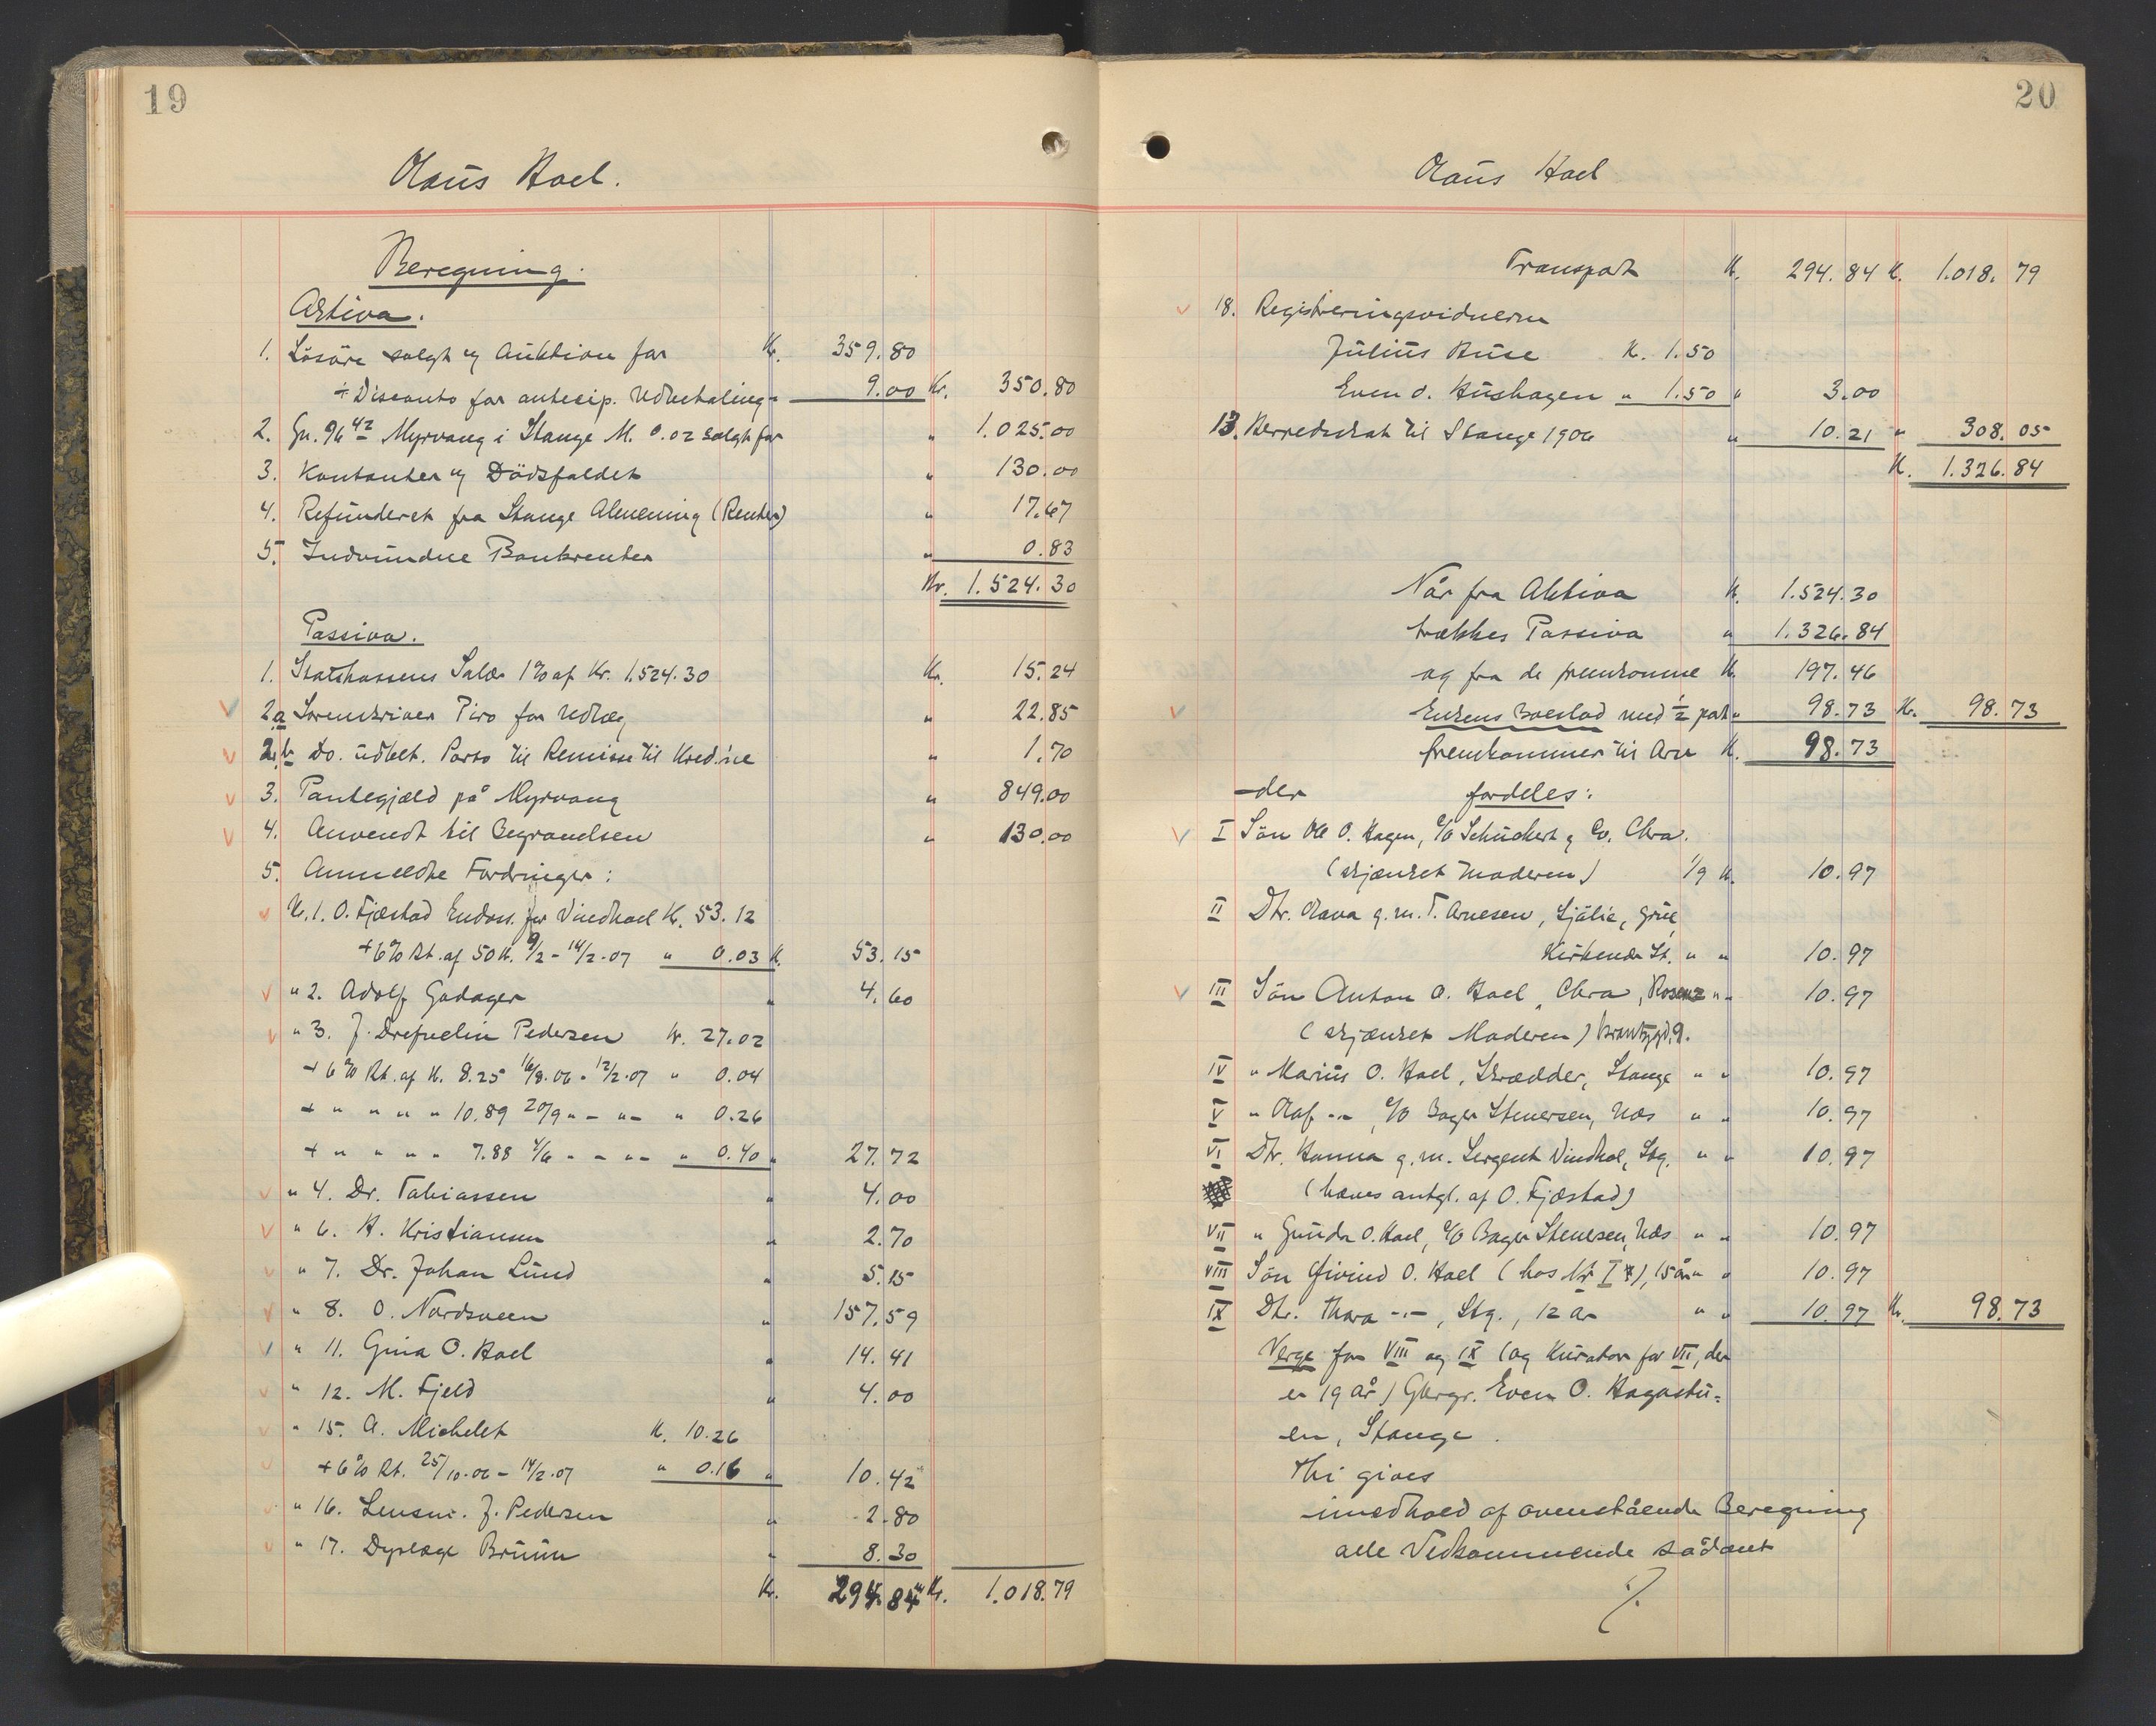 19
Olaus Hoel.
Beregning.
Aktiva.
1. Lösöre solgt v/ Auktion for Kr. 359.80
÷ Disconto for antecip. Udbetaling " 9.00 Kr. 350.80
2. Gn. 96 42 Myrvang i Stange M. 0.02 solgt for " 1.025.00
3. Kontanter v/ Dödsfaldet " 130.00
4. Refunderet fra Stange Almenning (Renter) " 17.67
5. Indvundne Bankrenter " 0.83
Kr. 1.524.30
Passiva.
1. Statskassens Salær 1% af Kr. 1.524.30 Kr. 15.24
2a Sorenskriver Piro for Udlæg " 22.85
2.b Do. udbelt. Porto til Remisse til Kred.ne " 1.70
3. Pantegjæld på Myrvang " 849.00
4. Anvendt til Begravelsen " 130.00
5. Anmeldte Fordringer:
N. 1. O. Fjæstad Endoss. for Vindhoel Kr. 53.12
+ 6% Rt. af 50 K. 9/2 - 14/2-07 " 0.03 K. 53.15
" 2. Adolf Godager " 4.60
" 3. J. Drefvelin Pedersen Kr. 27.02
+ 6% Rt. af K. 8.25 16/8.06 - 12/2.07 " 0.04
+ " " " " 10.89 20/9 " - " - " 0.26
+ " " " " 7.88 4/6 " - " - " 0.40 " 27.72
" 4. Dr. Tobiassen " 4.00
" 6. H. Kristiansen " 2.70
" 7. Dr. Johan Lund " 5.15
" 8. O. Nordsveen " 157.59
" 11. Gina O. Hoel " 14.41
" 12. M. Fjeld " 4.00
" 15. A. Michelet K. 10.26
+ 6% Rt. 25/10.06 - 14/2.07 " 0.16 " 10.42
" 16. Lensm. J. Pedersen " 2.80
" 17. Dyrlæge Bruun " 8.30
Kr. 294.84 Kr. 1.018.79
20
Olaus Hoel
Transport K. 294.84 K. 1.018.79
18. Registreringsvidnerne
Julius Huse K. 1.50
Even O. Hushagen " 1.50 " 3.00
13. Herredsskat til Stange 1906 " 10.21 " 308.05
K. 1.326.84
Når fra Aktiva K. 1.524.30
trækkes Passiva " 1.326.84
og fra de fremkomne K. 197.46
Enkens Boeslod med 1/2 part " 98.73 Kr. 98.73
fremkommer til Arv K. 98.73
-der fordeles:
I Sön Ole O. Hagen, c/o Schuckert & Co. Chra.
(skjænket Moderen) 1/9 K. 10.97
II Dtr. Olava g.m. T. Arnesen, Sjölie, Grue,
Kirkenær St. " " 10.97
III Sön Anton O. Hoel, Chra, Rosenk " " 10.97
(skjænket Moderen) krantzgd. 9.
IV " Marius O. Hoel, Skrædder, Stange " " 10.97
V " Olaf -"-, c/o Bager Stenersen, Næs " " 10.97
VI Dtr. Hanna g.m. Sergent Vindhol, Stg. " " 10.97
(hæves antgl. af O. Fjæstad)
VII " Gunda O. Hoel, c/o Bager Stenersen, Næs " " 10.97
VIII Sön Eivind O. Hoel (hos Nr I), 15 år " " 10.97
IX Dtr. Thora -"-, Stg., 12 år " " 10.97 Kr. 98.73
Verge for VIII og IX (og Kurator for VII, der
er 19 år) Gbrgr. Even O. Hagastu=
en, Stange.
Thi gives
-imedhold af ovenstående Beregning
alle Vedkommende sådant
./.